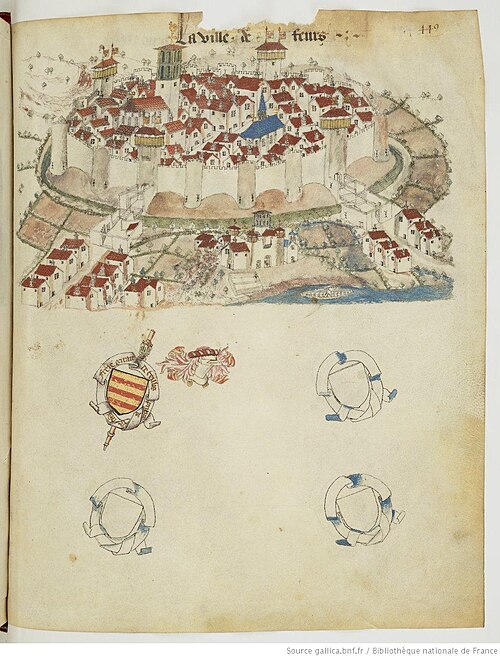 La ville de feurs
449
Source gallica.bnf.fr / Bibliothèque nationale de France